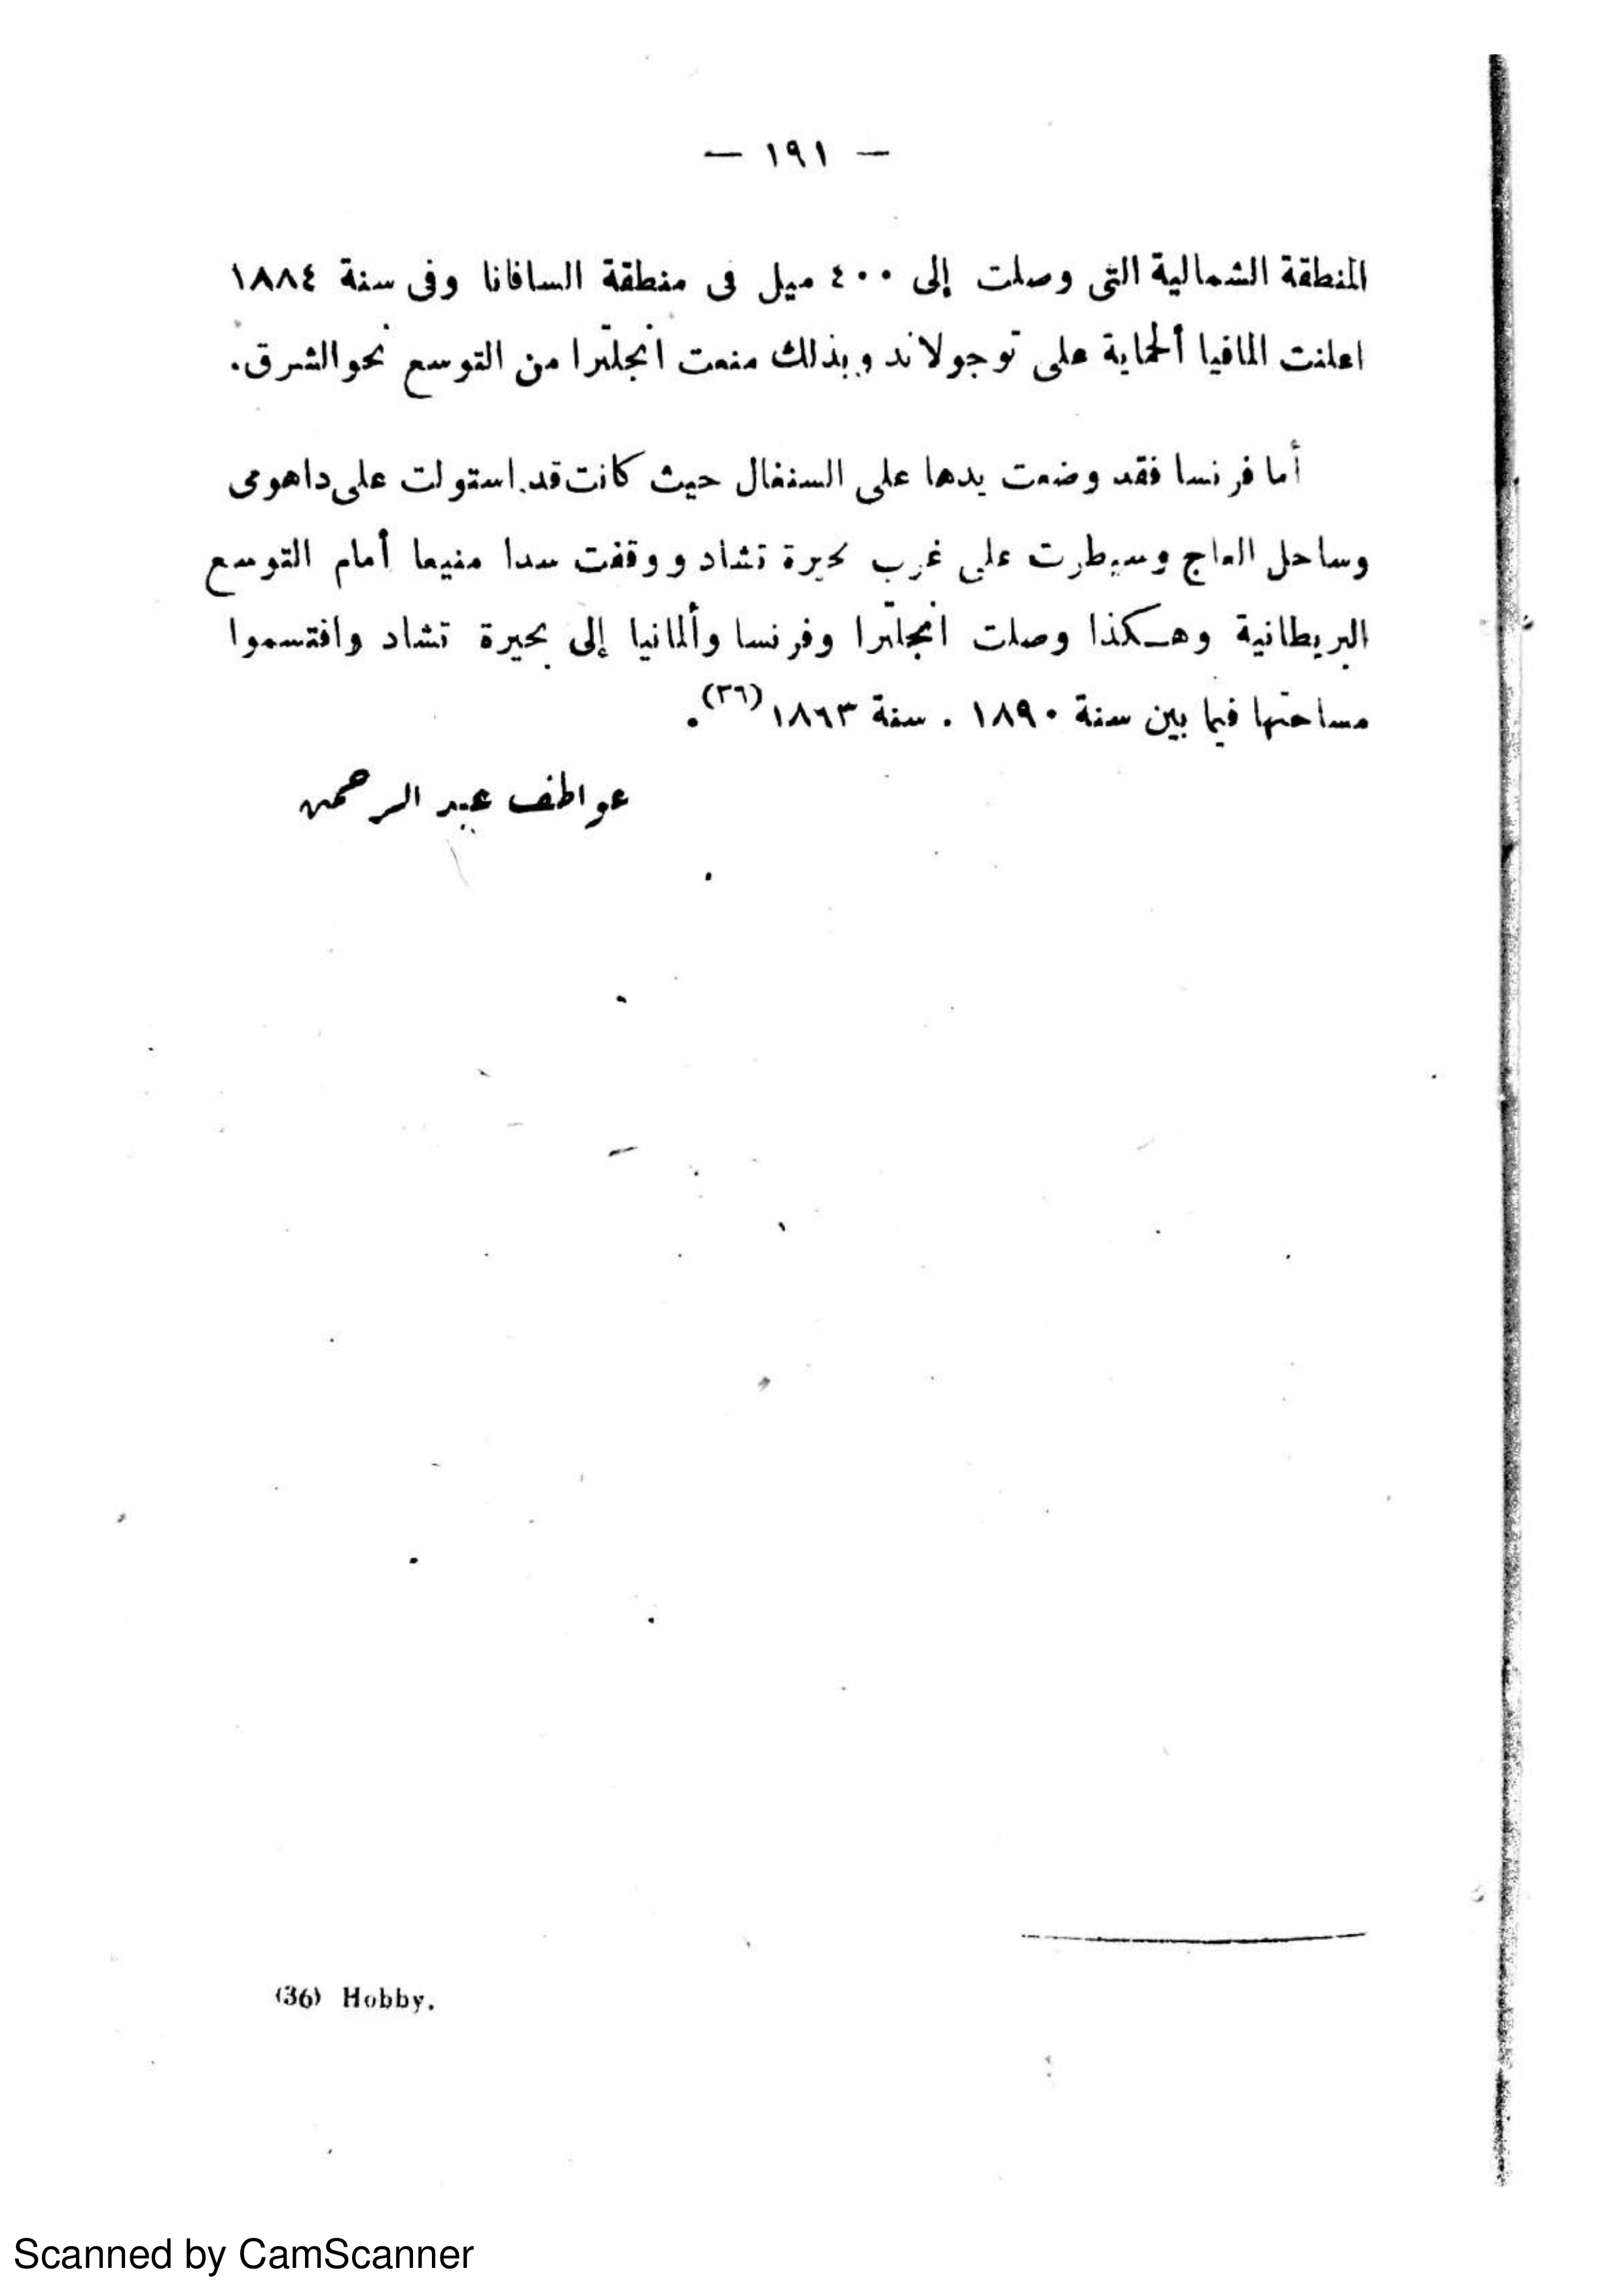 — ١٩١ —
المنطقة الشمالية التى وصلت إلى ٤٠٠ ميل فى منطقة السافانا وفى سنة ١٨٨٤
اعلنت المافيا ألحماية على توجولاند وبذلك منعت انجلترا من التوسع نحو الشرق.
أما فرنسا فقد وضعت يدها على السنغال حيث كانت قد استولت على داهومى
وساحل العاج وسيطرت على غرب بحيرة تشاد ووقفت سدا منيعا أمام التوسع
البريطانية وهكذا وصلت انجلترا وفرنسا وألمانيا إلى بحيرة تشاد وافتسموا
مساحتها فيما بين سنة ١٨٩٠ . سنة ١٨٦٣ (٣٦).
عواطف عبد الرحمن
(36) Hobby.
Scanned by CamScanner